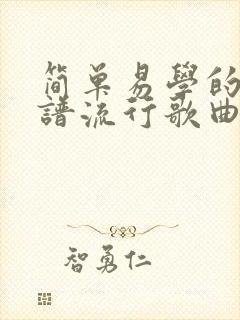 简单易學的
譜流行歌曲
智勇仁